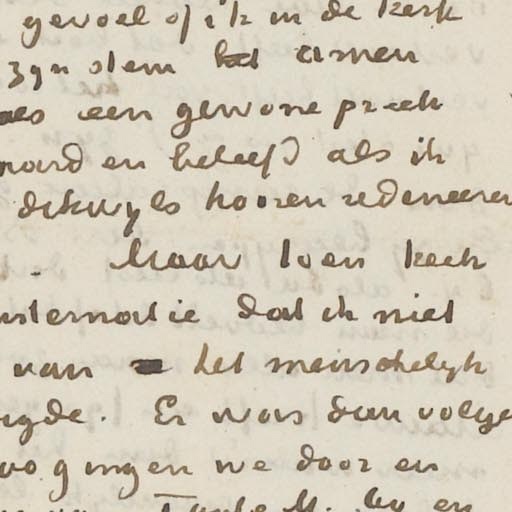 gevoel of ik in de kerk
zyn stem het amen
een gewone preek
en beleefd als ik
dikwyls hooren redeneeren
Maar toen keek
nsternatie dat ik niet
van het menschelyk
gde. Er was dan volge
zoo gingen we door en
Tante M. by en